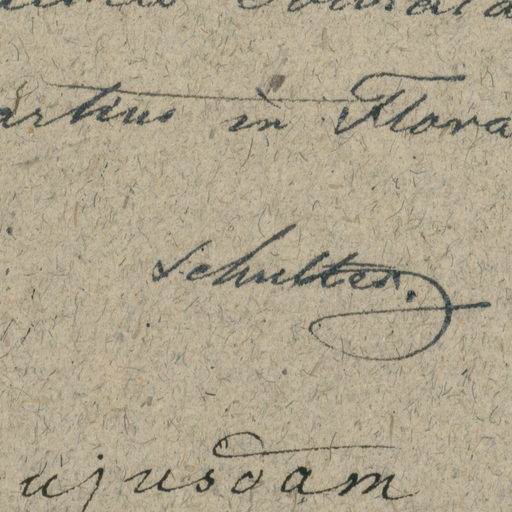 artius in Flora
Schultes.
ujusdam